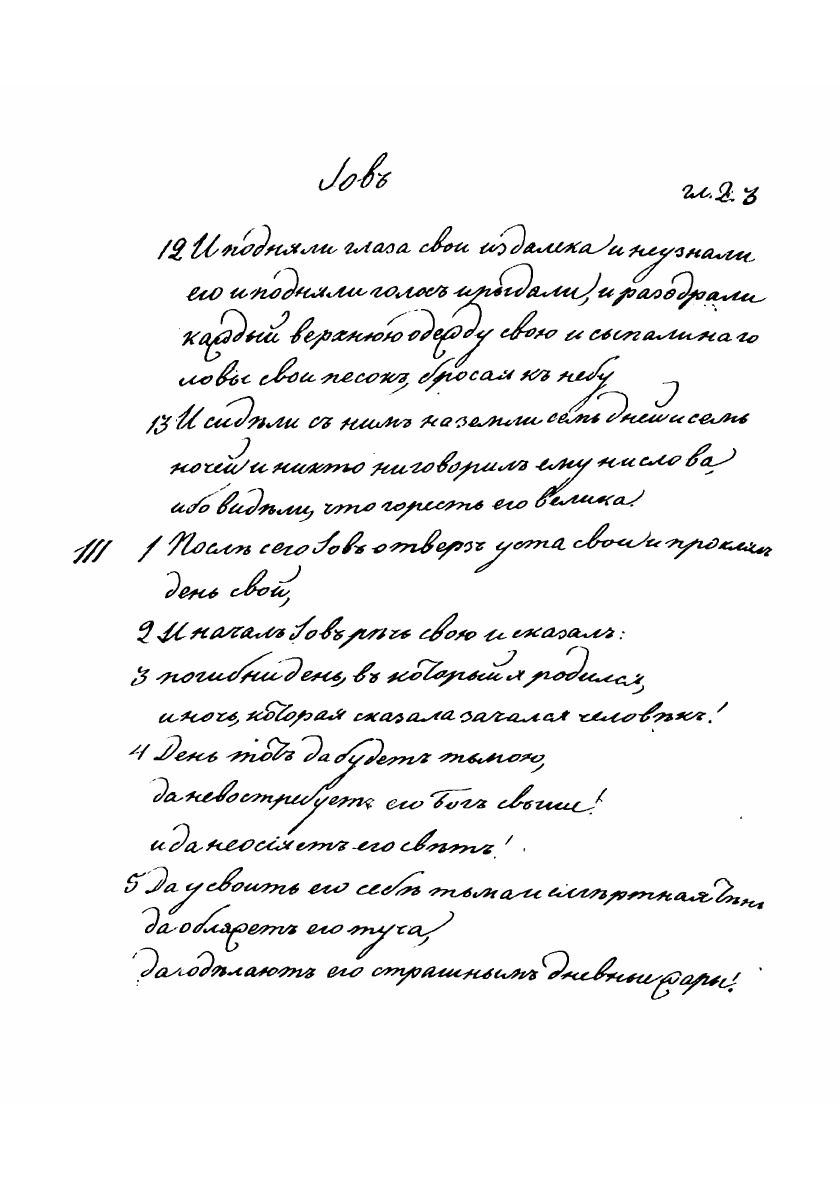 Іовъ
гл. 2. 3
12 И подняли глаза свои издалека и неузнали
его и подняли голосъ и рыдали, и разодрали
каждый верхнюю одежду свою и сыпали на го
ловы свои песокъ, бросая къ небу
13 И сидѣли съ нимъ на земли семь дней и семь
ночей и никто ниговорилъ ему ни слова,
ибо видѣли, что горесть его велика.
III 1 Послѣ сего Іовъ отверзъ уста свои и проклялъ
день свой,
2 И началъ Іовъ рѣчь свою и сказалъ:
3 погибни день, въ который я родился,
и ночь, которая сказала зачался человѣкъ!
4 День тотъ да будетъ тьмою,
да невостребуетъ его Богъ свыше!
и да неосіяетъ его свѣтъ!
5 Да усвоитъ его себѣ тьма и смертная тѣнь
да обляжетъ его туча,
да содѣлаютъ его страшнымъ дневные жары!